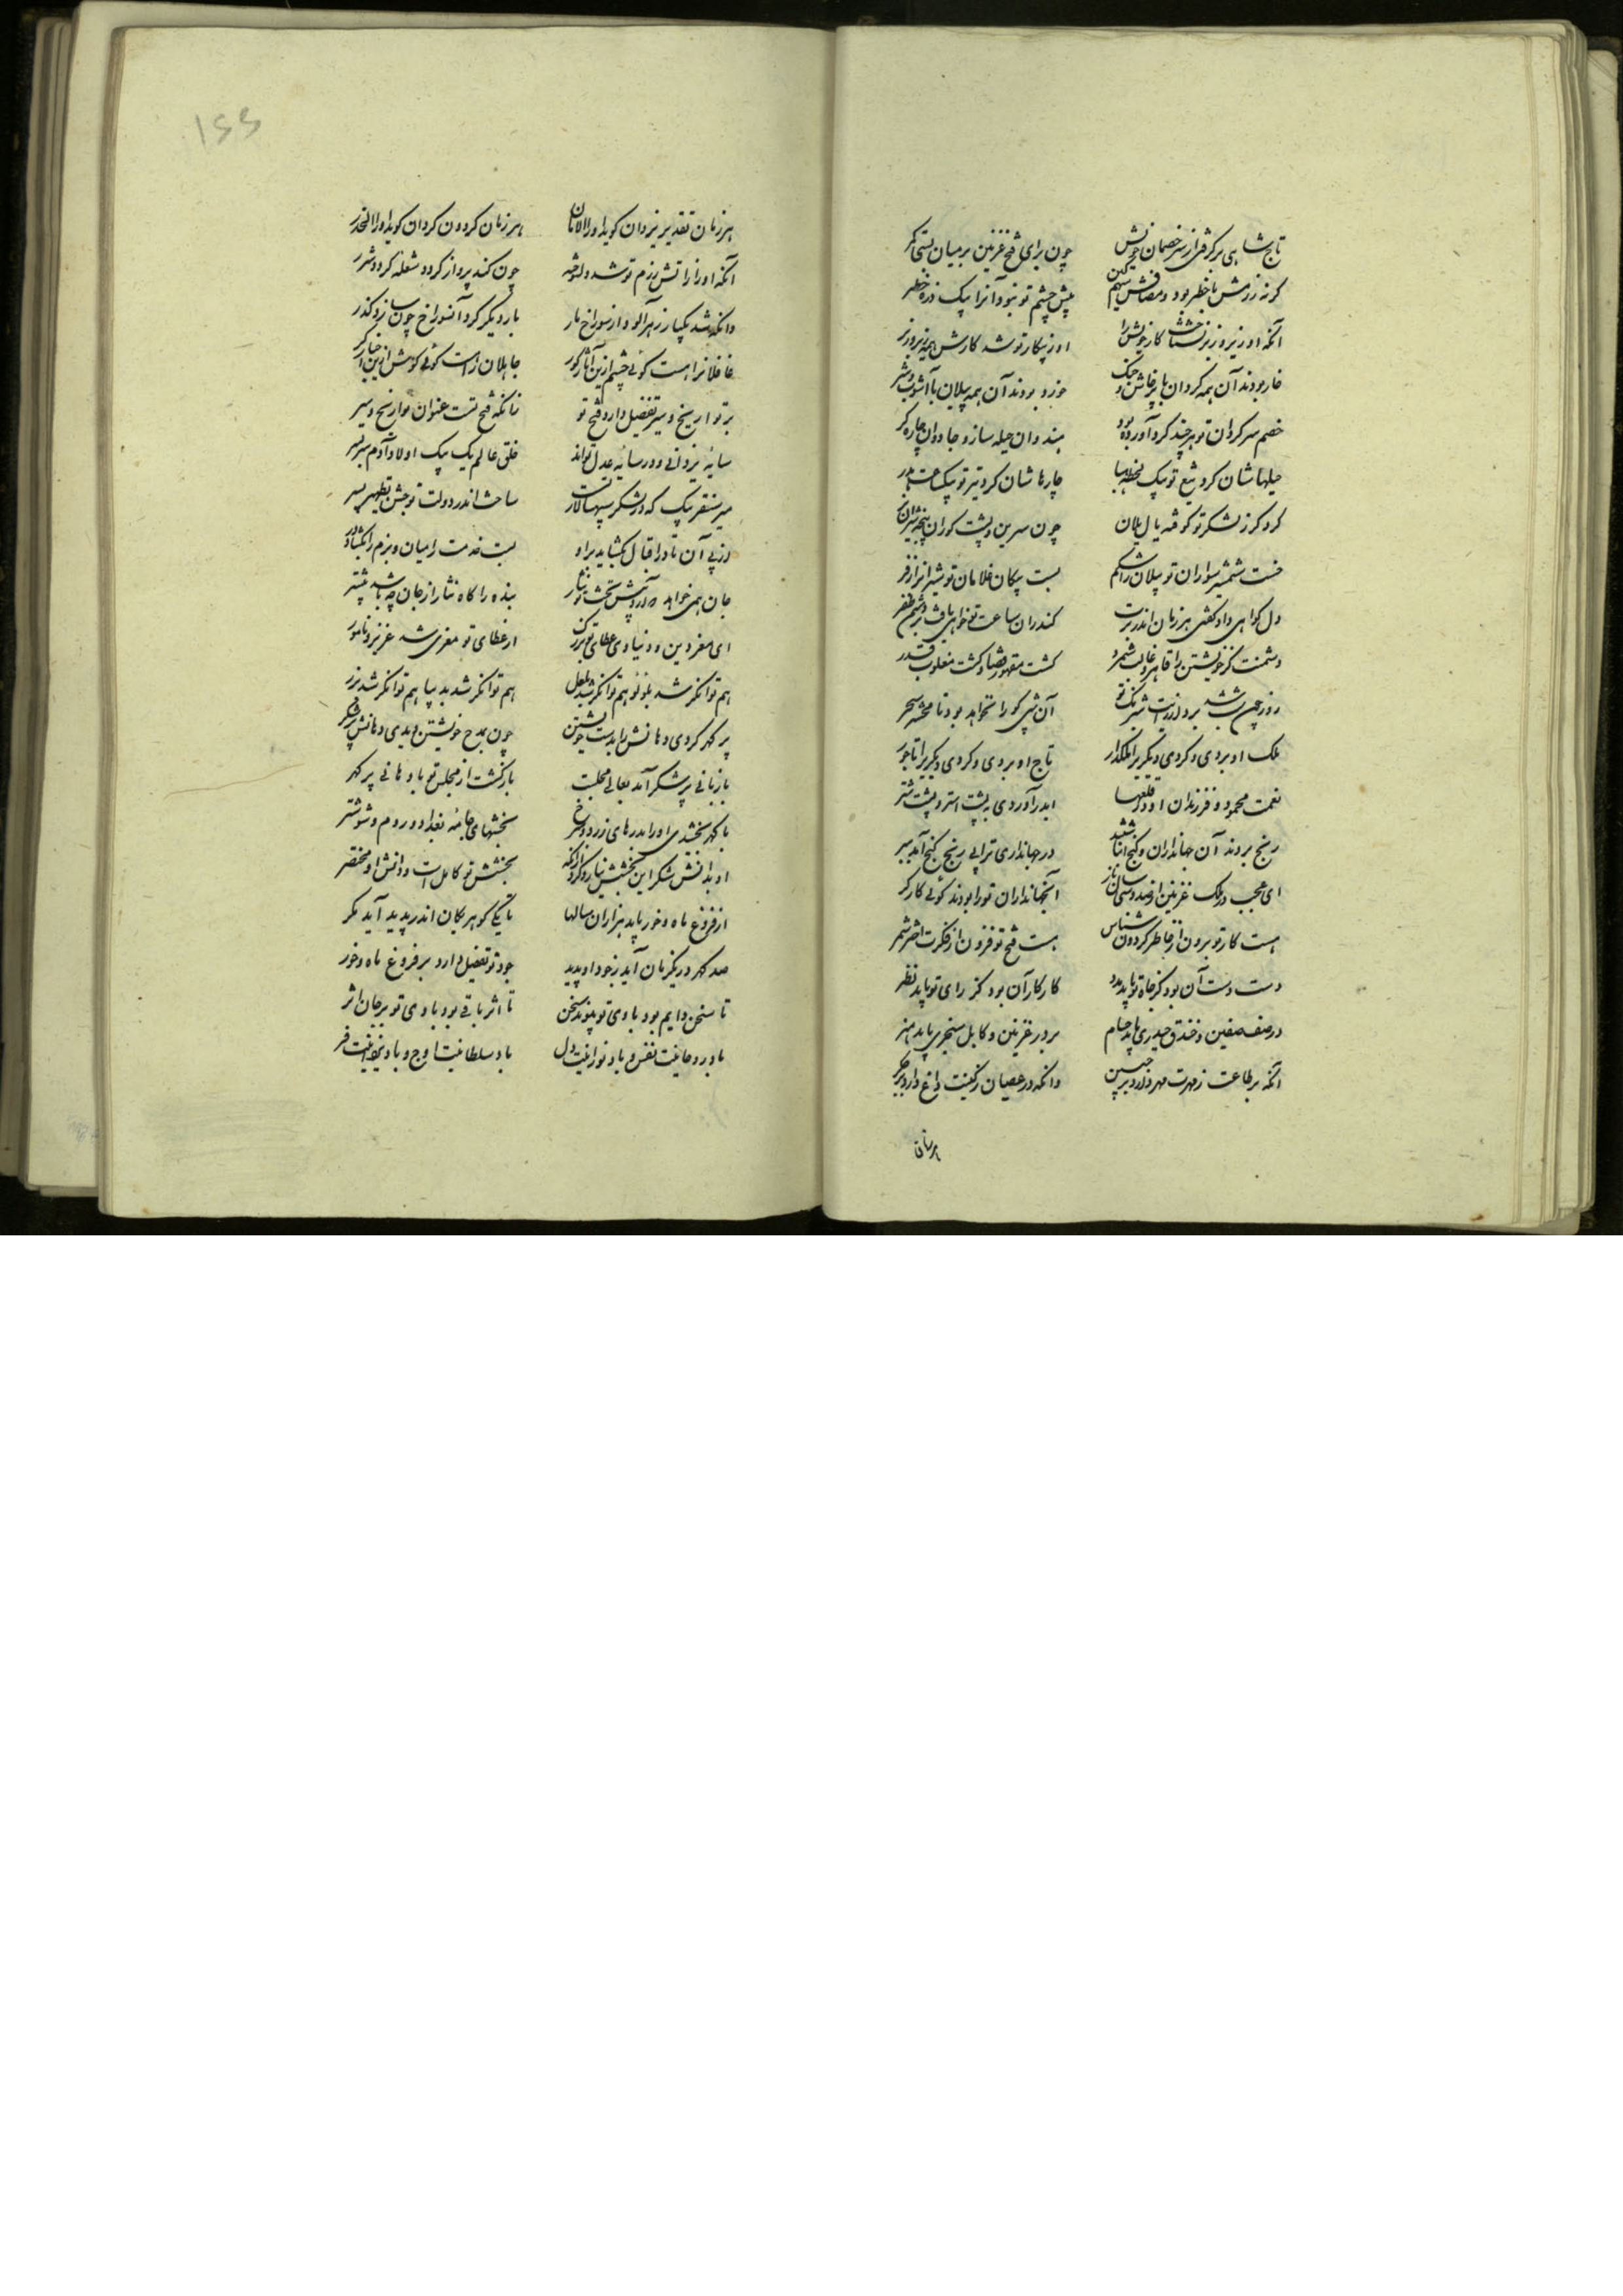 تاج شاهی برگرفتی از سر خصمان خویش چون برای فتح غزنین بر میان بستی کمر
گرنه رزمش با خطر بود و مصافش سهمگین پیش چشم تو نبود آنرا یک ذره خطر
آنکه او زیر و زبر نشناخت کار خویش را او ز پیکار تو شد کارش همه زیر و زبر
خار بودند آن همه گردان با پرخاش و جنگ خرد بودند آن همه پیلان با آشوب و شر
خصم سرگردان تو هر چند گرد آورده بود هندوان حیله ساز و جادوان چاره گر
حیلهاشان کرد تیغ تو بیک لحظه هبا چارهاشان کرد تیر تو بیک ساعت هدر
کرد گرز لشکر تو کوفته یال یلان چون سرین و پشت گوران پنجه شیران نر
خست شمشیر سواران تو پیلان را شکم بست پیکان غلامان تو شیرانرا زفر
دل گواهی داد گفتی هر زمان اندر برت کندران ساعت تو خواهی یافت بر دشمن ظفر
دشمنت کز خویشتن را قاهر و غالب شمرد گشت مقهور قضا و گشت مغلوب قدر
روز چون شب شد برو از هیبت شبرنگ تو آن شبی کورا نخواهد بود تا محشر سحر
ملک او بردی و کردی دیگریرا ملکدار تاج او بردی و کردی دیگریرا تاجور
نعمت محمود و فرزندان او در قلعهها اندر آوردی به پشت استر و پشت شتر
رنج بردند آن جهانداران و گنج انباشتند در جهانداری ترا بی رنج گنج آمد ببر
ای عجب در ملک غزنین از صد و سی سال باز آنجهانداران تو را بودند گوئی کارگر
هست کار تو برون از خاطر گردون شناس هست فتح تو فزون از فکرت اختر شمر
دست دست آن بود کز جاه تو یابد مدد کار کار آن بود کز رای تو یابد نظر
در صف صفین و خندق حیدری باید حسام بر در غزنین و کابل سنجری باید هنر
آنکه بر طاعت ز مهرت مهر دارد بر جبین وانکه در عصیان ز کینت داغ دارد بر جگر
هر زمان
هر زمان تقدیر یزدان گوید او را الامان هر زمان گردون گردان گوید او را الحذر
آنکه او را ز آتش رزم تو شد دل سوخته چون کند پرواز گرد شعله گردد شرر
وانکه شد یکبار زهرآلود از سوراخ مار بار دیگر گرد آنسوراخ چون سازد گذر
غافلانرا هست گوئی چشم ازین آثار کور جاهلان راست گوئی گوش ازین اخبار کر
بر تواریخ و سیر تفضیل دارد فتح تو زانکه فتح تست عنوان تواریخ و سیر
سایه یزدانی و در سایه عدل تواند خلق عالم یک بیک اولاد آدم سر بسر
میر سنقر بیک که در لشکر سپهسالار تست ساخت اندر دولت تو جشن تطهیر پسر
از پی آن تا در اقبال بگشاید براو بست خدمت را میان و بزم را بگشاد در
جان همی خواهد که در پیش تختت نثار بنده را گاه نثار از جان چه باشد بیشتر
ای معز دین و دنیا وی عطای تو بزرگ از عطای تو معزی شد عزیز و نامور
هم توانگر شد بلؤلؤ هم توانگر شد بلعل هم توانگر شد بدیبا هم توانگر شد بزر
پر گهر کردی دهانش را بدست خویشتن چون بمدح خویشتن دیدی دهانش پر شکر
با زبانی پر شکر آمد بعالی مجلست بازگشت از مجلس تو با دهانی پر گهر
با گهر بخشیدی او را بدرهای زر و سرخ بخششهای جامه بغداد و روم و شوشتر
او بدانش شکر این بخشش نیارد کرد ازانکه بخشش تو کامل است و دانش او مختصر
از فروغ ماه و خور باید هزاران سالها تا یکی گوهر بکان اندر پدید آید مگر
صد گهر در یکزمان آید ز جود او پدید جود تو تفضیل دارد بر فروغ ماه و خور
تا سخن دایم بود بادی تو پیوند سخن تا اثر باقی بود بادی تو بر جان اثر
باد روحانیت نفس و باد نورانیت دل باد سلطانیت اوج و باد یزدانیت فر